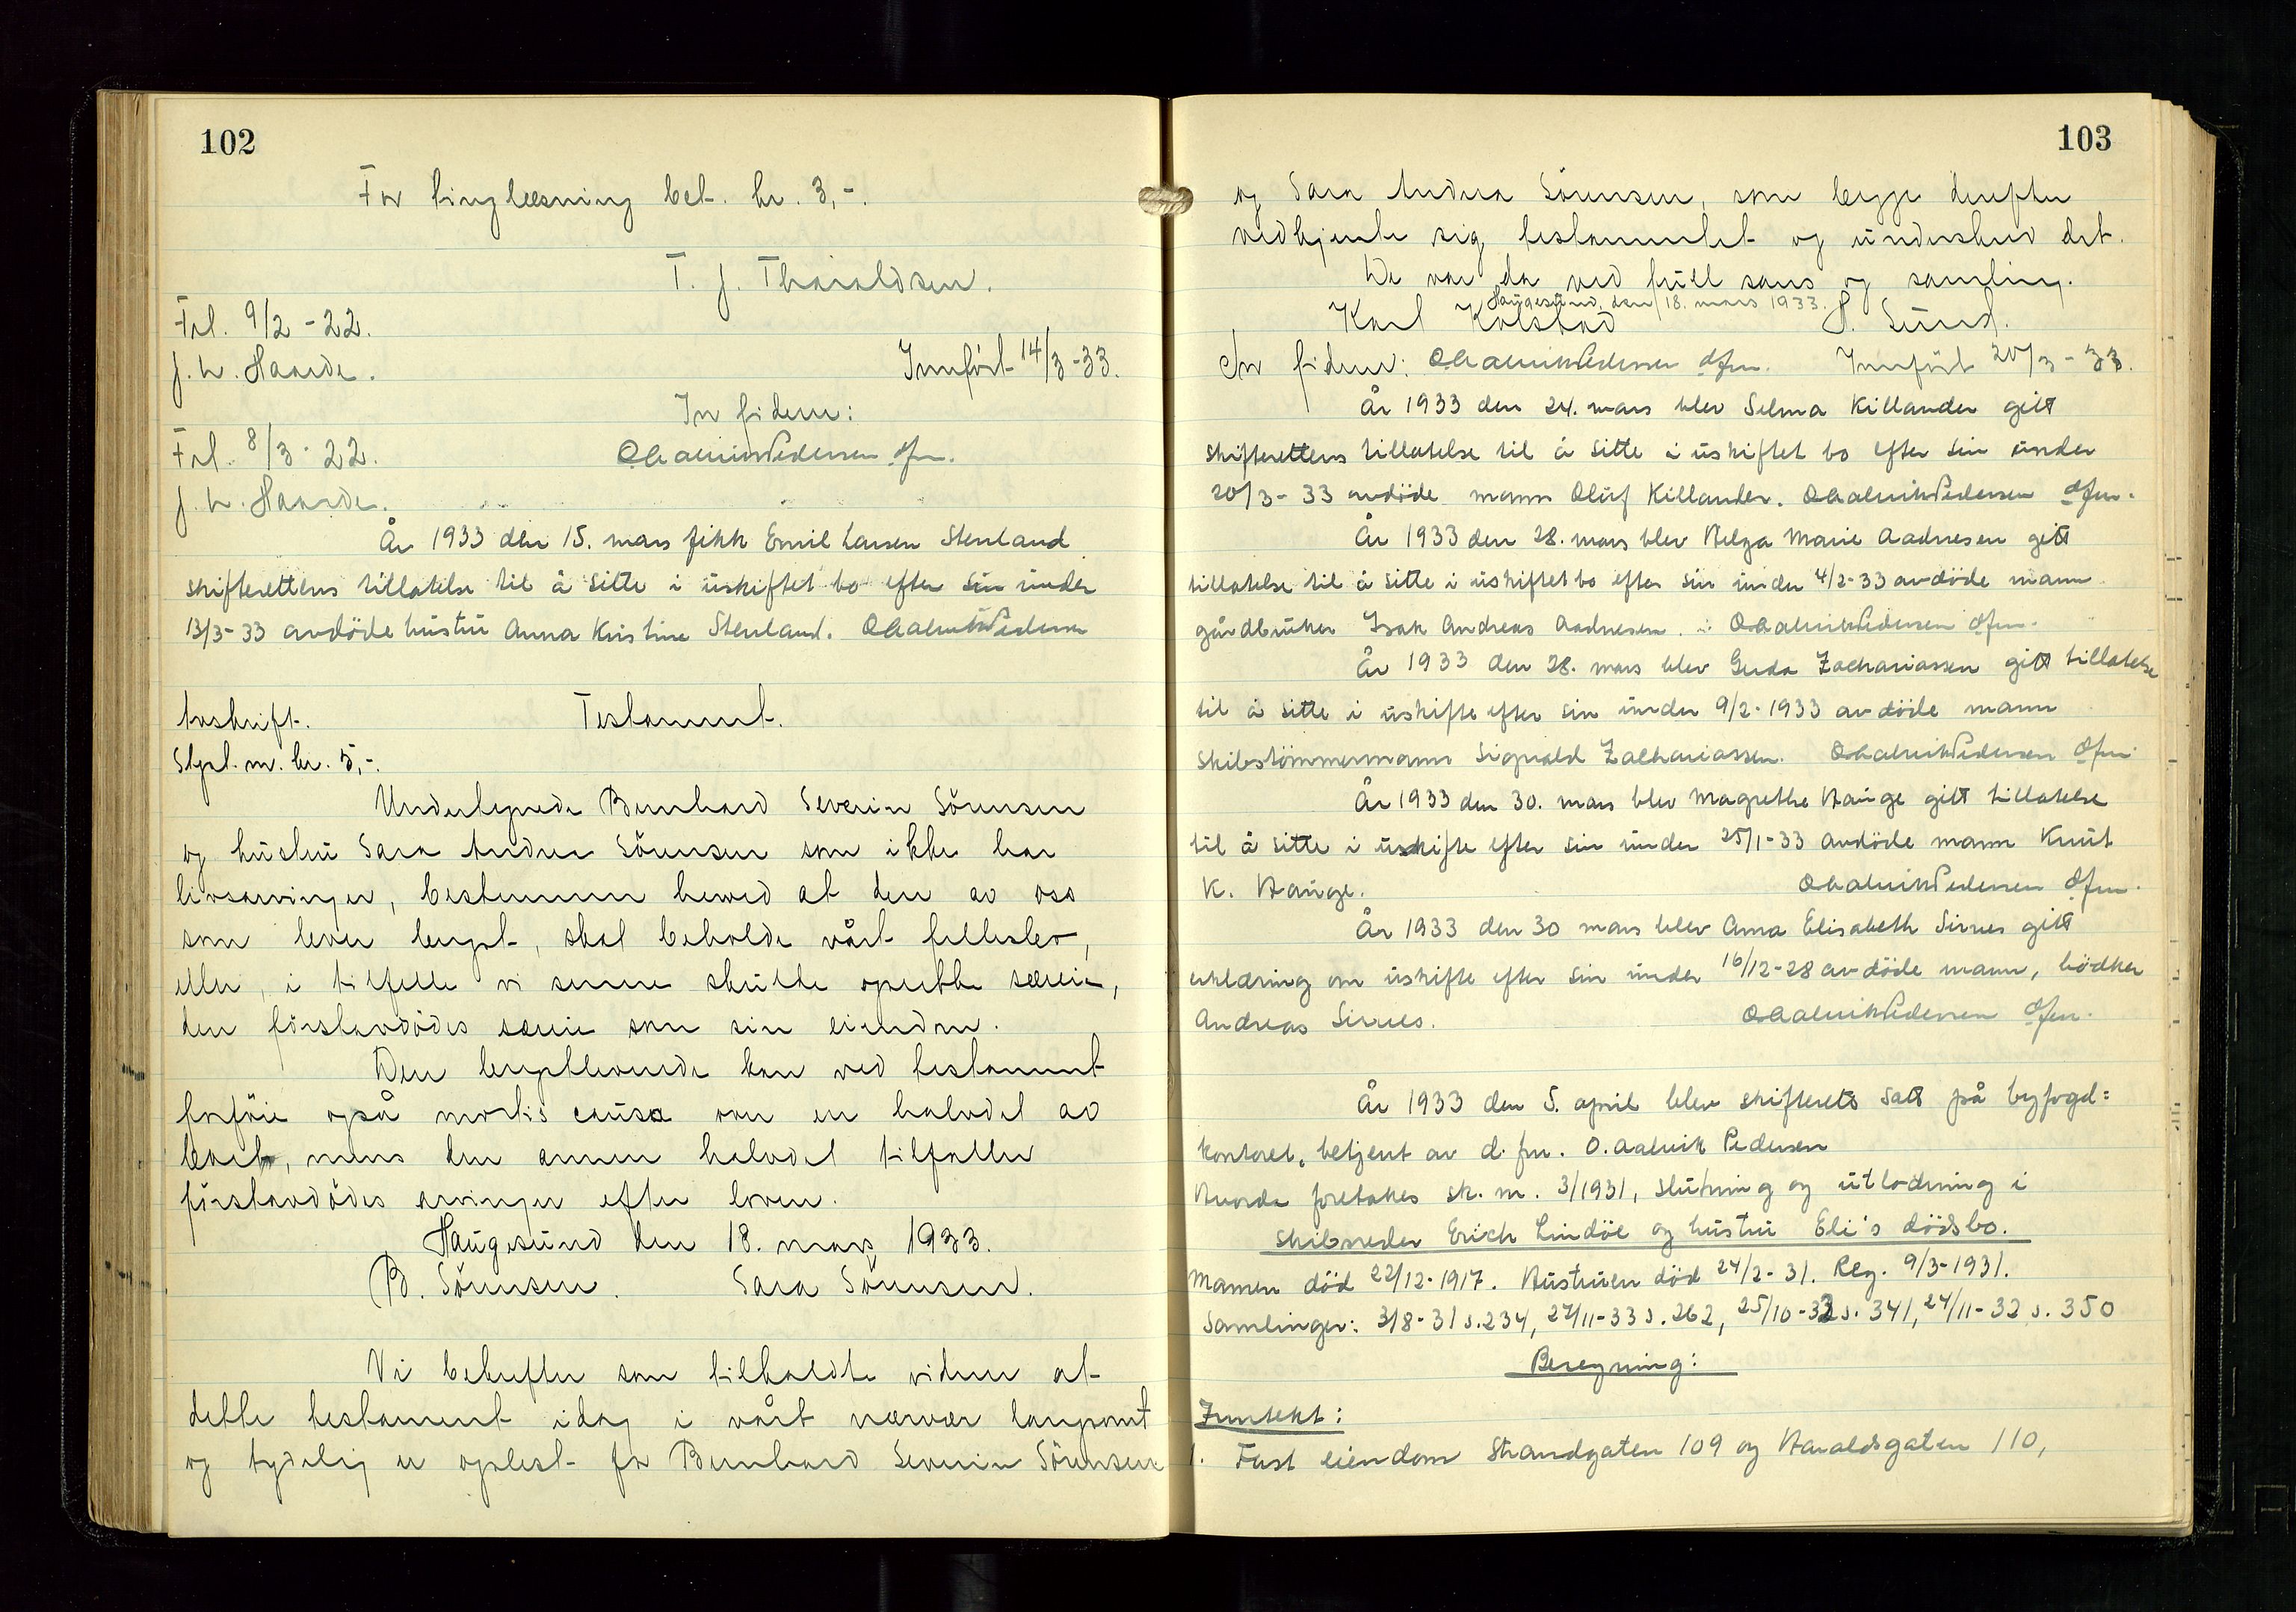 102
For tinglæsning bet. kr. 3,-.
T. J. Tharaldsen.
Frl. 9/2 - 22.
J. W. Haarde.
Innført 14/3 - 33.
In fidem:
Frl. 8/3 - 22.
O Aalvik Pedersen dfm.
J. W. Haarde.
År 1933 den 15. mars fikk Emil Larsen Stenland
skifterettens tillatelse til å sitte i uskiftet bo efter sin under
13/3 - 33 avdöde hustru Anna Kristine Stenland. O Aalvik Pedersen
Avskrift.
Testament.
Stpl. m. kr. 5,-.
Undertegnede Bernhard Severin Sörensen
og hustru Sara Andrea Sörensen som ikke har
livsarvinger, bestemmer herved at den av oss
som lever lengst, skal beholde vårt fellesbo,
eller, i tilfelle vi senere skulde oprette særeie,
den förstavdödes særeie som sin eiendom.
Den lengstlevende kan ved testament
forföie også mortis causa over en halvdel av
boet, mens den annen halvdel tilfaller
förstavdödes arvinger efter loven.
Haugesund den 18. mars 1933.
B. Sörensen. Sara Sörensen.
Vi bekrefter som tilkaldte vidner at
dette testament idag i vårt nærvær langsomt
og tydelig er oplest for Bernhard Severin Sörensen
103
og Sara Andrea Sörensen, som begge derefter
vedkjente sig testamentet og underskrev det.
De var da ved full sans og samling.
Haugesund, den 18. mars 1933.
Karl Kolstad H. Sund.
In fidem: O Aalvik Pedersen dfm. Innfört 20/3 - 33.
År 1933 den 24. mars blev Selma Killander gitt
skifterettens tillatelse til å sitte i uskiftet bo efter sin under
20/3 - 33 avdöde mann Oluf Killander. O Aalvik Pedersen dfm.
År 1933 den 28. mars blev Helga Marie Aadnesen gitt
tillatelse til å sitte i uskiftet bo efter sin under 4/2-33 avdöde mann
gårdbruker Isak Andreas Aadnesen. O Aalvik Pedersen dfm.
År 1933 den 28. mars blev Gerda Zachariassen gitt tillatelse
til å sitte i uskifte efter sin under 9/2-1933 avdöde mann
skibstömmermann Sigvald Zachariassen. O Aalvik Pedersen dfm
År 1933 den 30. mars blev Magrethe Hauge gitt tillatelse
til å sitte i uskifte efter sin under 25/1-33 avdöde mann Knut
K. Hauge. O Aalvik Pedersen dfm.
År 1933 den 30 mars blev Anna Elisabeth Sirnes gitt
erklæring om uskifte efter sin under 16/12-28 avdöde mann, bödker
Andreas Sirnes. O Aalvik Pedersen dfm.
År 1933 den 5. april blev skifterett satt på byfogd=
kontoret, betjent av d. fm. O. Aalvik Pedersen
Hvorda foretakes sk. nr. 3/1931, slutning og utlodning i
skibsreder Erich Lindöe og hustru Eli's dödsbo.
Mannen död 22/12-1917. Hustruen död 24/2-31. Reg. 9/3-1931.
Samlinger: 3/8-31 s. 234, 27/11-33 s. 262, 25/10-32 s. 341, 24/11-32 s. 350
Beregning:
Inntekt:
1. Fast eiendom Strandgaten 109 og Haraldsgaten 110,